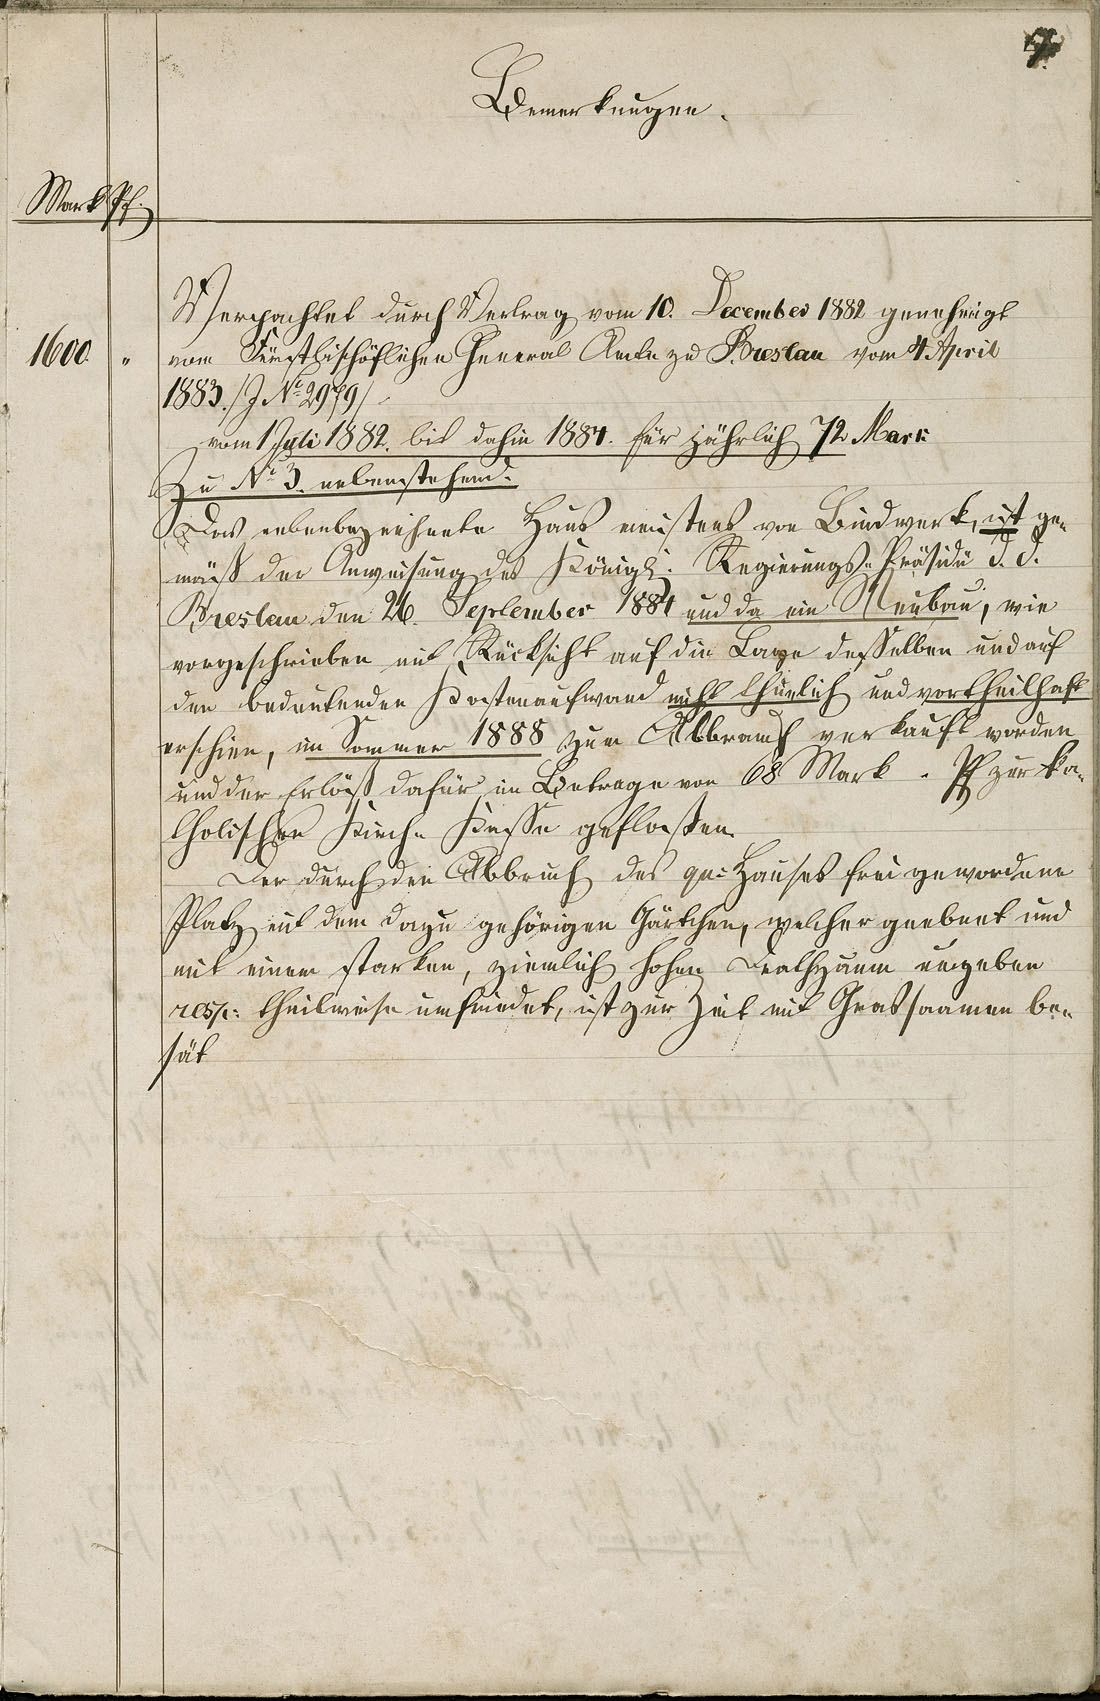 7.
Bemerkungen.
Mark Pf.
Verpachtet durch Vertrag vom 10. December 1882 genehmigt
1600. " vom Fürstbischöflichen General Amte zu Breslau vom 4 April
1883. /J № 2979/
vom 1 Juli 1882. bis dahin 1884. für jährlich 72 Mark
Zu № 3. nebenstehend.
Das nebenbezeichnete Haus meistens von Bindwerk, ist ge-
mäß der Anweisung des Königl. Regierungs-Präsidii d. d.
Breslau den 26. September 1884 und da ein Neubau, wie
vorgeschrieben mit Rücksicht auf die Lage desselben und auf
den bedeutenden Kostenaufwand nicht thunlich und vortheilhaft
erschien, im Sommer 1888 zum Abbruch verkauft worden
und der Erlöß dafür im Betrage von 68 Mark - Pf zur ka-
tholischen Kirch. Kasse geflossen.
Der durch den Abbruch des qu: Hauses frei gewordene
Platz mit dem dazu gehörigen Gärtchen, welcher geebnet und
mit einem starken, ziemlich hohen Drathzaum umgeben
resp: theilweise umfriedet, ist zur Zeit mit Grassaamen be-
sät